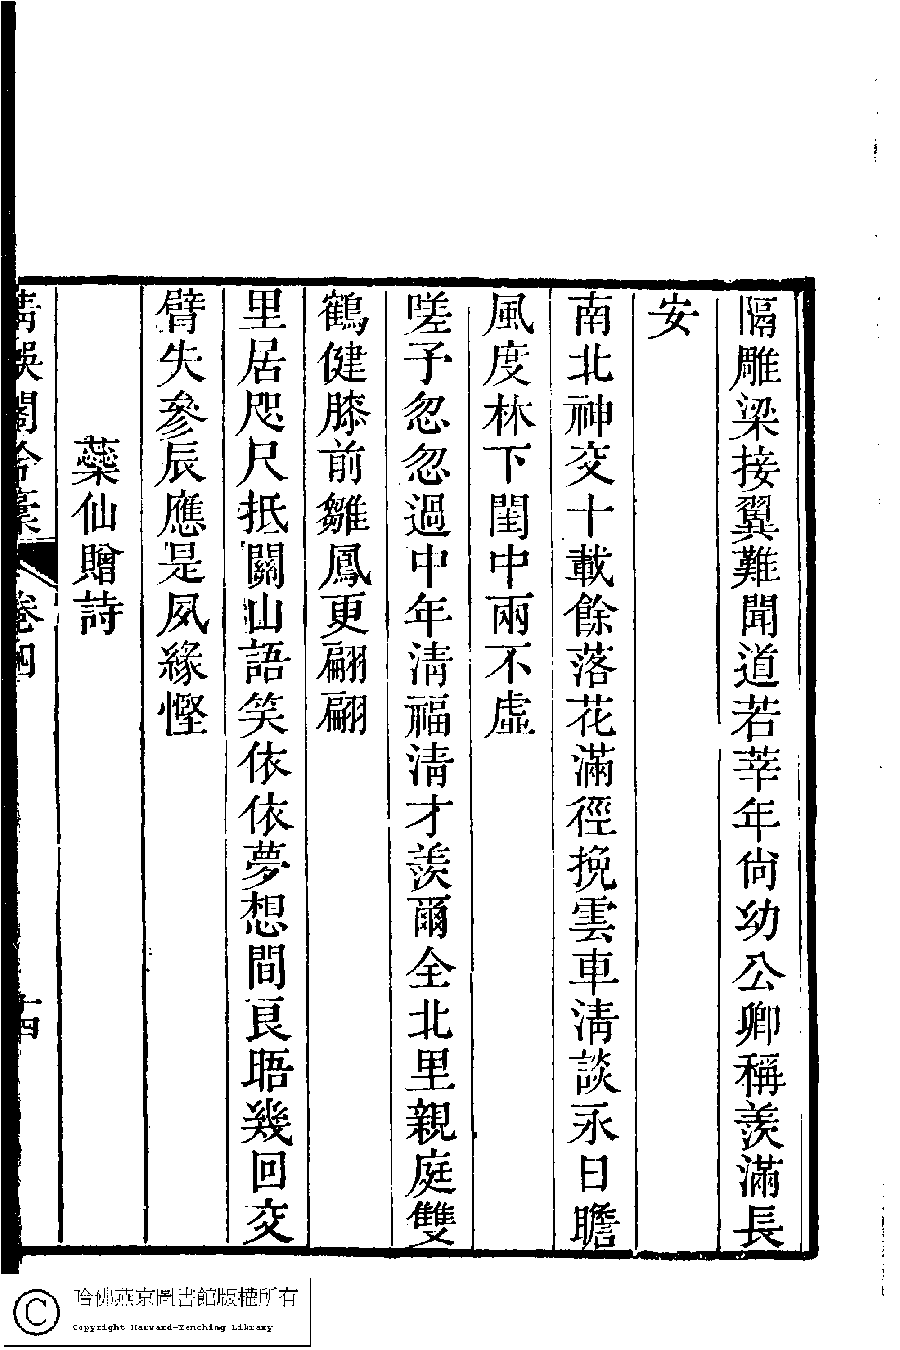 隔雕梁接翼難聞道若莘年尙幼公卿稱羨滿長
安
南北神交十載餘落花滿徑挽雲車清談永日瞻
風度林下閨中兩不虛
嗟予忽忽過中年清福清才羨爾全北里親庭雙
鶴健膝前雛鳳更翩翩
里居咫尺抵關山語笑依依夢想間良晤幾回交
臂失參辰應是夙緣慳
蘂仙贈詩
清娛閣吟藁
卷四
十四
哈佛燕京圖書館版權所有
Copyright Harvard-Yenching Library